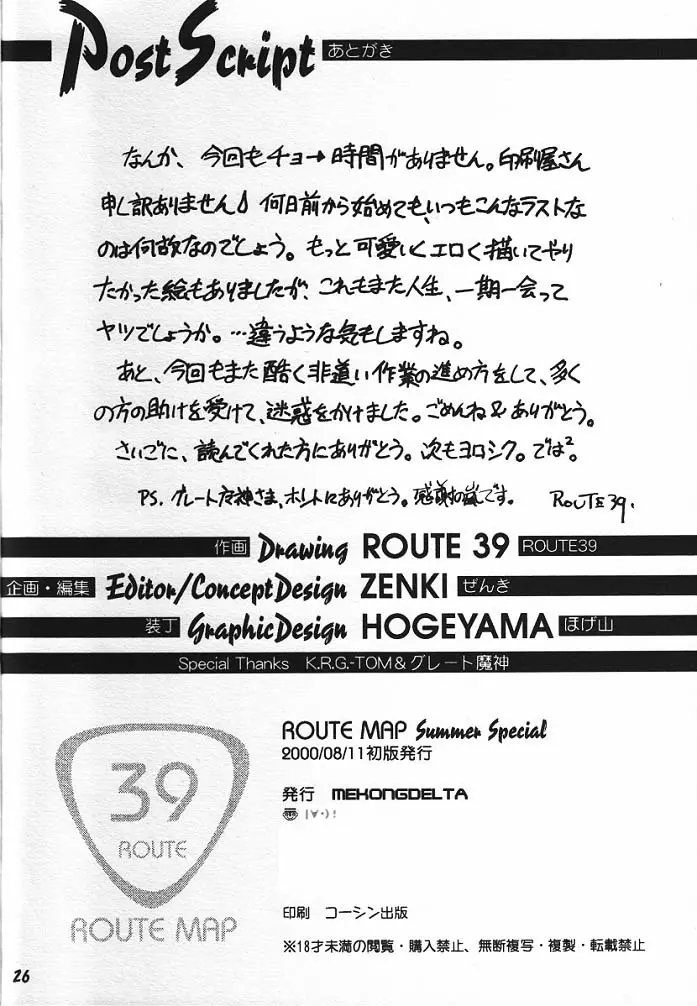 Post Script あとがき
なんか、今回もチョー時間がありません。印刷屋さん
申し訳ありません♪ 何日前から始めても、いつもこんなラストな
のは何故なのでしょう。もっと可愛いくエロく描いてやり
たかった絵もありましたが、これもまた人生、一期一会って
ヤツでしょうか。…違うような気もしますね。
あと、今回もまた酷く非道い作業の進め方をして、多く
の方の助けを受けて、迷惑をかけました。ごめんね&ありがとう。
さいごに、読んでくれた方にありがとう。次もヨロシク。では²。
PS. グレートな神さま、ホントにありがとう。感謝の嵐です。 ROUTE39.
作画 Drawing ROUTE 39 ROUTE39
企画・編集 Editor/Concept Design ZENKI ぜんき
装丁 Graphic Design HOGEYAMA ほげ山
Special Thanks K.R.G.-TOM&グレート魔神
39
ROUTE
ROUTE MAP
ROUTE MAP Summer Special
2000/08/11初版発行
発行 MEKONGDELTA
|∀・)!
印刷 コーシン出版
※18才未満の閲覧・購入禁止、無断複写・複製・転載禁止
26